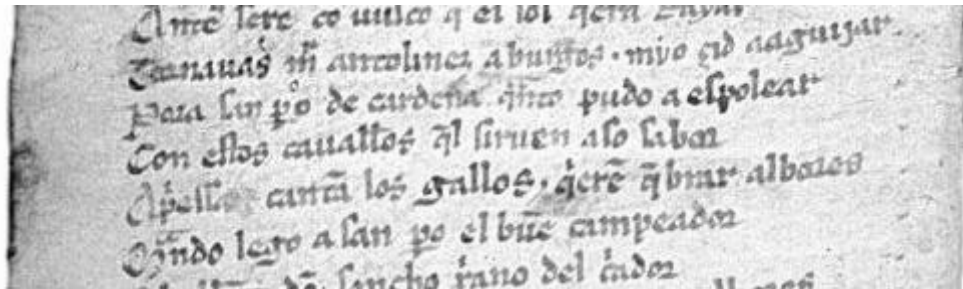 Ante sere cō uusco q̄ el sol q̄era Rayar
Tornauas m̄ antolinez a burgos · myo çid a aguijar
Pora san p̊o de cardeña q̄nto pudo a espoleAr
Con estos cauallos q̄l siruen a so sabor
Ap̄essa cantā los gallos · q̄erē q̄brar albores
Q̄ndo lego a san po el buē campeador
dō sancho xp̄ano del c̄ador